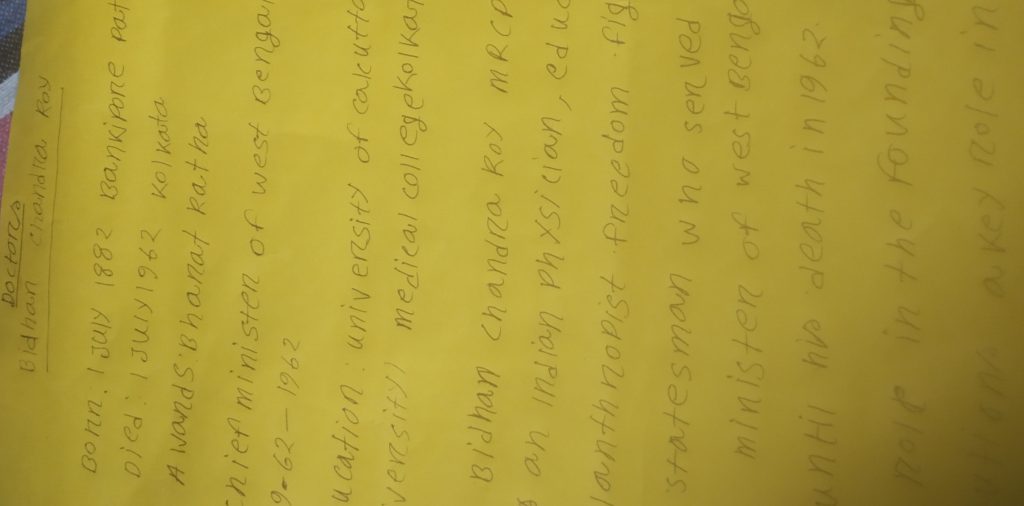 Doctors
Bidhan Chandra Roy
Born: 1 July 1882 Bankipore pat
Died: 1 July 1962 Kolkata
Awards: Bharat Ratna
hief minister of west Benga
9-62-1962
ucation: university of calcutta
versity) medical college kolkat
Bidhan Chandra Roy MRCP
an Indian physician, educ
lanthropist. freedom. fig
statesman who served
minister of west Benga
until his death in 1962.
role in the founding
utions a key role in